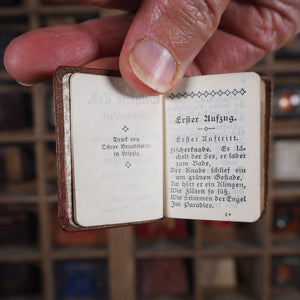 Druck von
Oscar Brandstetter
in Leipzig.
Erster Aufzug.
Erster Auftritt.
Fischerknabe. Es lä-
chelt der See, er ladet
zum Bade,
Der Knabe schlief ein
am grünen Gestade,
Da hört er ein Klingen,
Wie Flöten so süß,
Wie Stimmen der Engel
Im Paradies.
1*